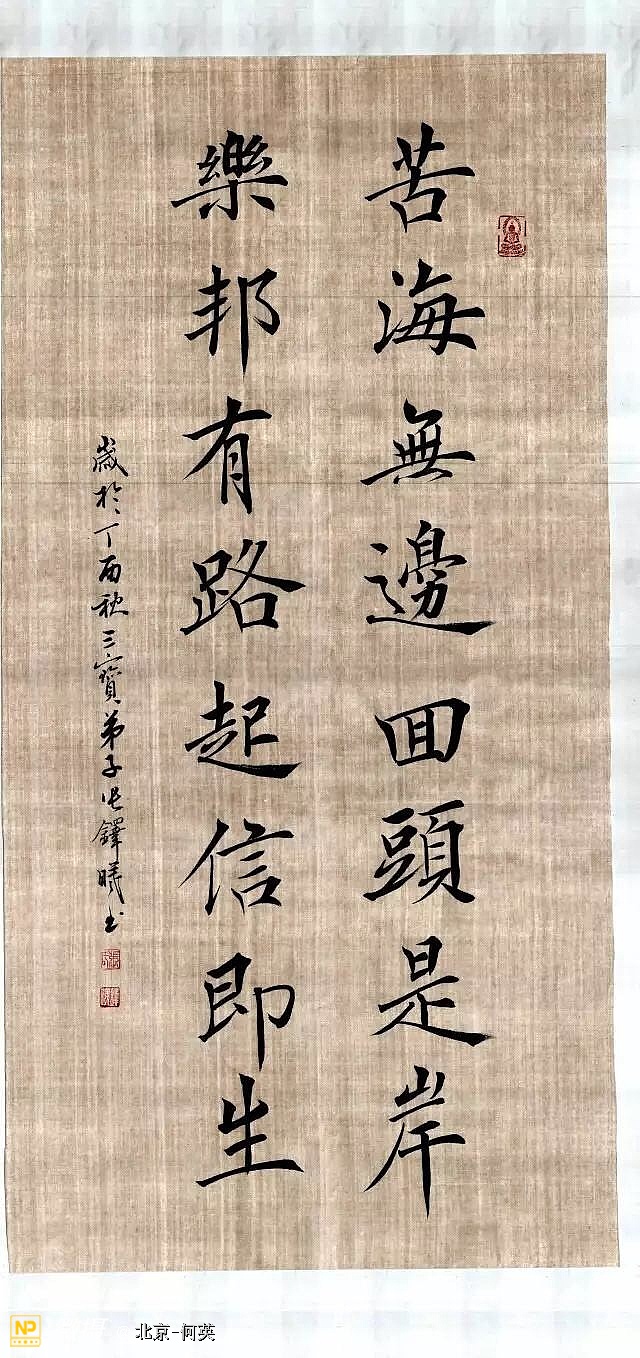 苦海無邊回頭是岸
樂邦有路起信即生
歲於丁酉秋三寶弟子張鐸曦书
NP
北京-何英